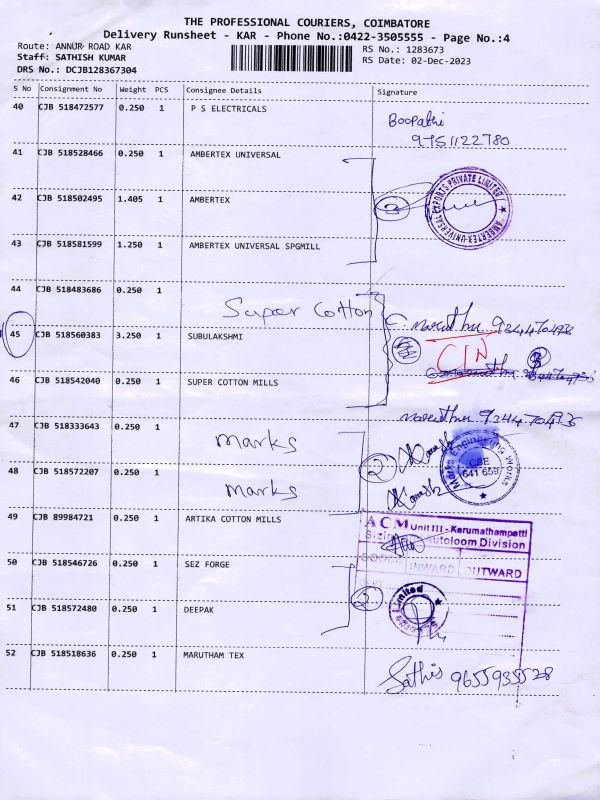 THE PROFESSIONAL COURIERS, COIMBATORE
Delivery Runsheet - KAR - Phone No.:0422-3505555 - Page No.:4
Route: ANNUR ROAD KAR
RS No.: 1283673
Staff: SATHISH KUMAR
RS Date: 02-Dec-2023
DRS No.: DCJB128367304
S No Consignment No Weight PCS Consignee Details Signature
40 CJB 518472577 0.250 1 P S ELECTRICALS
Boopathi
9751122780
41 CJB 518528466 0.250 1 AMBERTEX UNIVERSAL
42 CJB 518502495 1.405 1 AMBERTEX
3
AMBERTEX-UNIVERSAL EXPORTS PRIVATE LIMITED
43 CJB 518581599 1.250 1 AMBERTEX UNIVERSAL SPGMILL
44 CJB 518483686 0.250 1
Super Cotton
45 CJB 518560383 3.250 1 SUBULAKSHMI
C/N
3
46 CJB 518542040 0.250 1 SUPER COTTON MILLS
47 CJB 518333643 0.250 1
marks
2
Marks Engineering Works
CBE
641 659
48 CJB 518572207 0.250 1
marks
49 CJB 89984721 0.250 1 ARTIKA COTTON MILLS
ACM Unit III - Karumathampatti
Autoloom Division
GOODS INWARD OUTWARD
50 CJB 518546726 0.250 1 SEZ FORGE
51 CJB 518572480 0.250 1 DEEPAK
Limited
52 CJB 518518636 0.250 1 MARUTHAM TEX
Sathis 9655935528